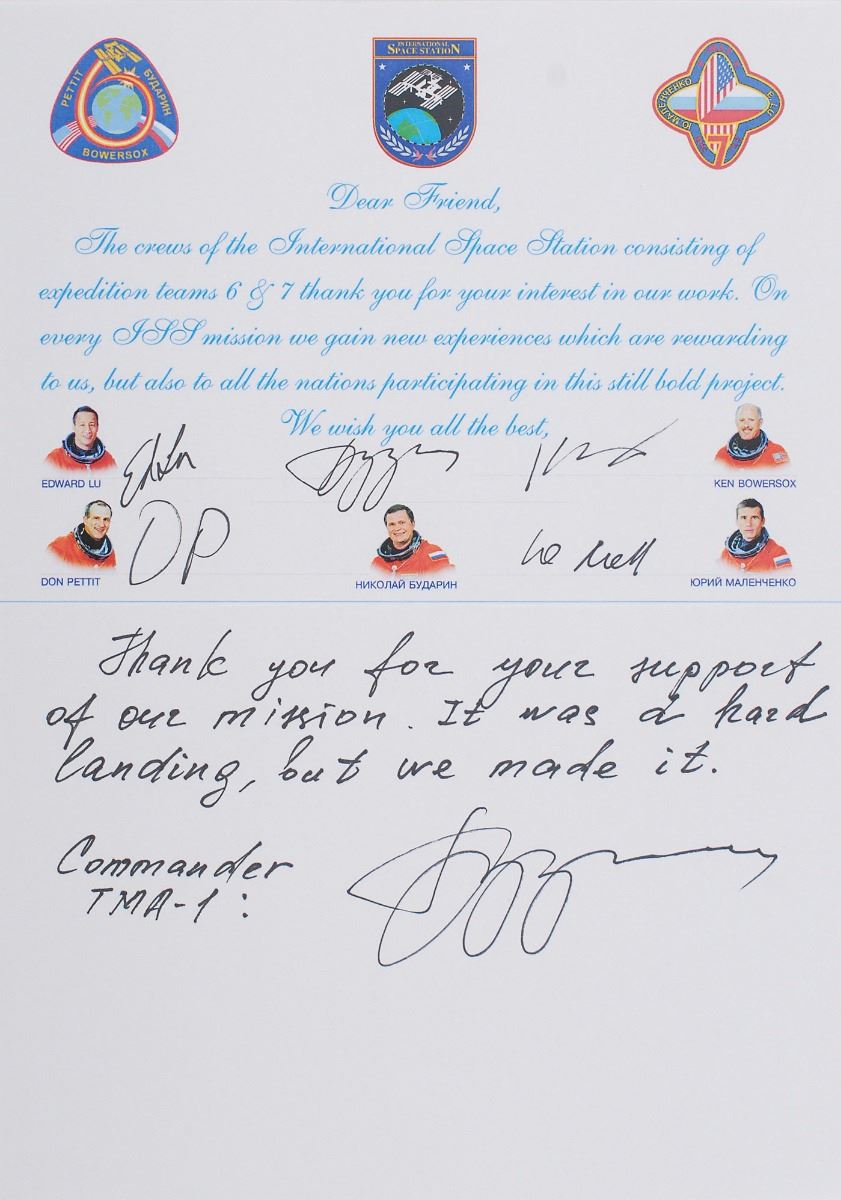 PETTIT БУДАРИН
BOWERSOX
INTERNATIONAL
SPACE STATION
Ю МАЛЕНЧЕНКО E. LU
7
Dear Friend,
The crews of the International Space Station consisting of
expedition teams 6 & 7 thank you for your interest in our work. On
every ISS mission we gain new experiences which are rewarding
to us, but also to all the nations participating in this still bold project.
We wish you all the best,
EDWARD LU
KEN BOWERSOX
DP
DON PETTIT
НИКОЛАЙ БУДАРИН
ЮРИЙ МАЛЕНЧЕНКО
Thank you for your support
of our mission. It was a hard
landing, but we made it.
Commander
TMA-1: